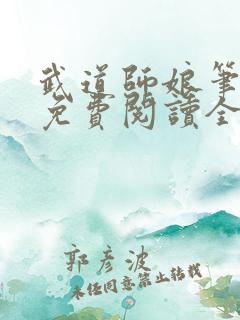 武道師娘筆
免費閱讀全
郭彦波
未经同意禁止转载